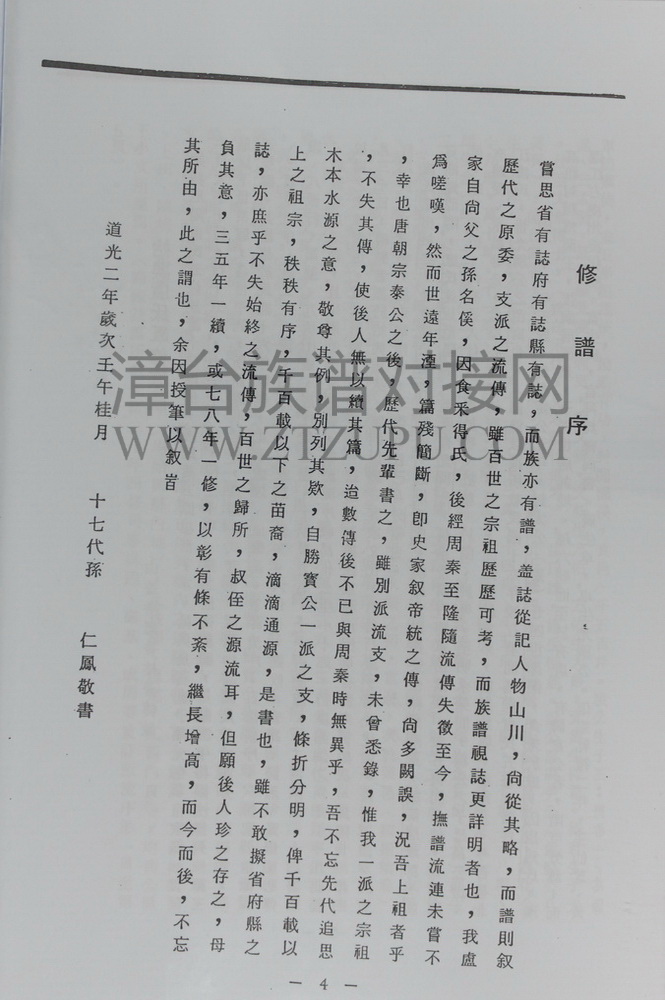 修譜序
嘗思省有誌府有誌縣有誌，而族亦有譜，盖誌從記人物山川，尙從其略，而譜則叙
歷代之原委，支派之流傳，雖百世之宗祖歷歷可考，而族譜視誌更詳明者也，我盧
家自尙父之孫名傒，因食采得氏，後經周秦至隆隨流傳失徵至今，撫譜流連未嘗不
爲嗟嘆，然而世遠年湮，篇殘簡斷，卽史家叙帝統之傳，尙多闕誤，況吾上祖者乎
，幸也唐朝宗泰公之後，歷代先輩書之，雖別派流支，未曾悉錄，惟我一派之宗祖
，不失其傳，使後人無以續其篇，迨數傳後不已與周秦時無異乎，吾不忘先代追思
木本水源之意，敬尊其例，別列其欵，自勝寳公一派之支，條折分明，俾千百載以
上之祖宗，秩秩有序，千百載以下之苗裔，滴滴通源，是書也，雖不敢擬省府縣之
誌，亦庶乎不失始終之流傳，百世之歸所，叔侄之源流耳，但願後人珍之存之，毋
負其意，三五年一續，或七八年一修，以彰有條不紊，繼長增高，而今而後，不忘
其所由，此之謂也，余因授筆以叙岩
道光二年歲次壬午桂月　十七代孫　仁鳳敬書
— 4 —
漳台族谱对接网
WWW.ZTZUPU.COM